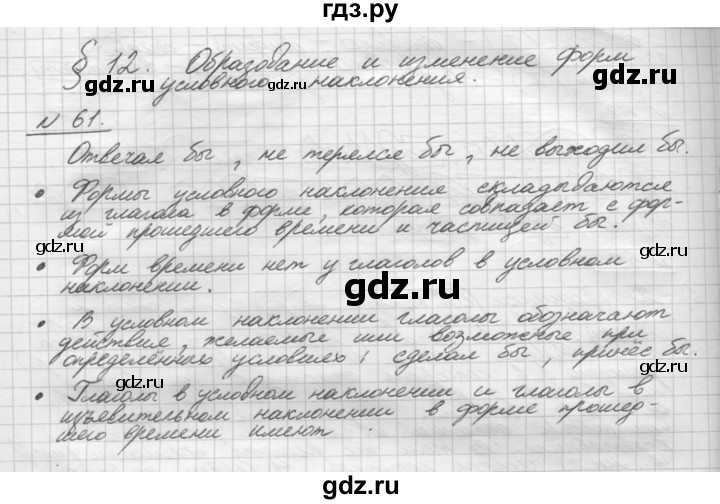 гдз.ру
§ 12. Образование и изменение форм
условного наклонения.
N 61.
Отвечал бы, не терялся бы, не выходил бы.
• Формы условного наклонения складываются
из глагола в форме, которая совпадает с фор-
мой прошедшего времени и частицей бы.
• Форм времени нет у глаголов в условном
наклонении.
• В условном наклонении глаголы обозначают
действия, желаемые или возможные при
определённых условиях: сделал бы, принёс бы.
• Глаголы в условном наклонении и глаголы в
изъявительном наклонении в форме прошед-
шего времени имеют
gdz.ru
gdz.ru
gdz.ru
gdz.ru
gdz.ru
gdz.ru
gdz.ru
gdz.ru
gdz.ru